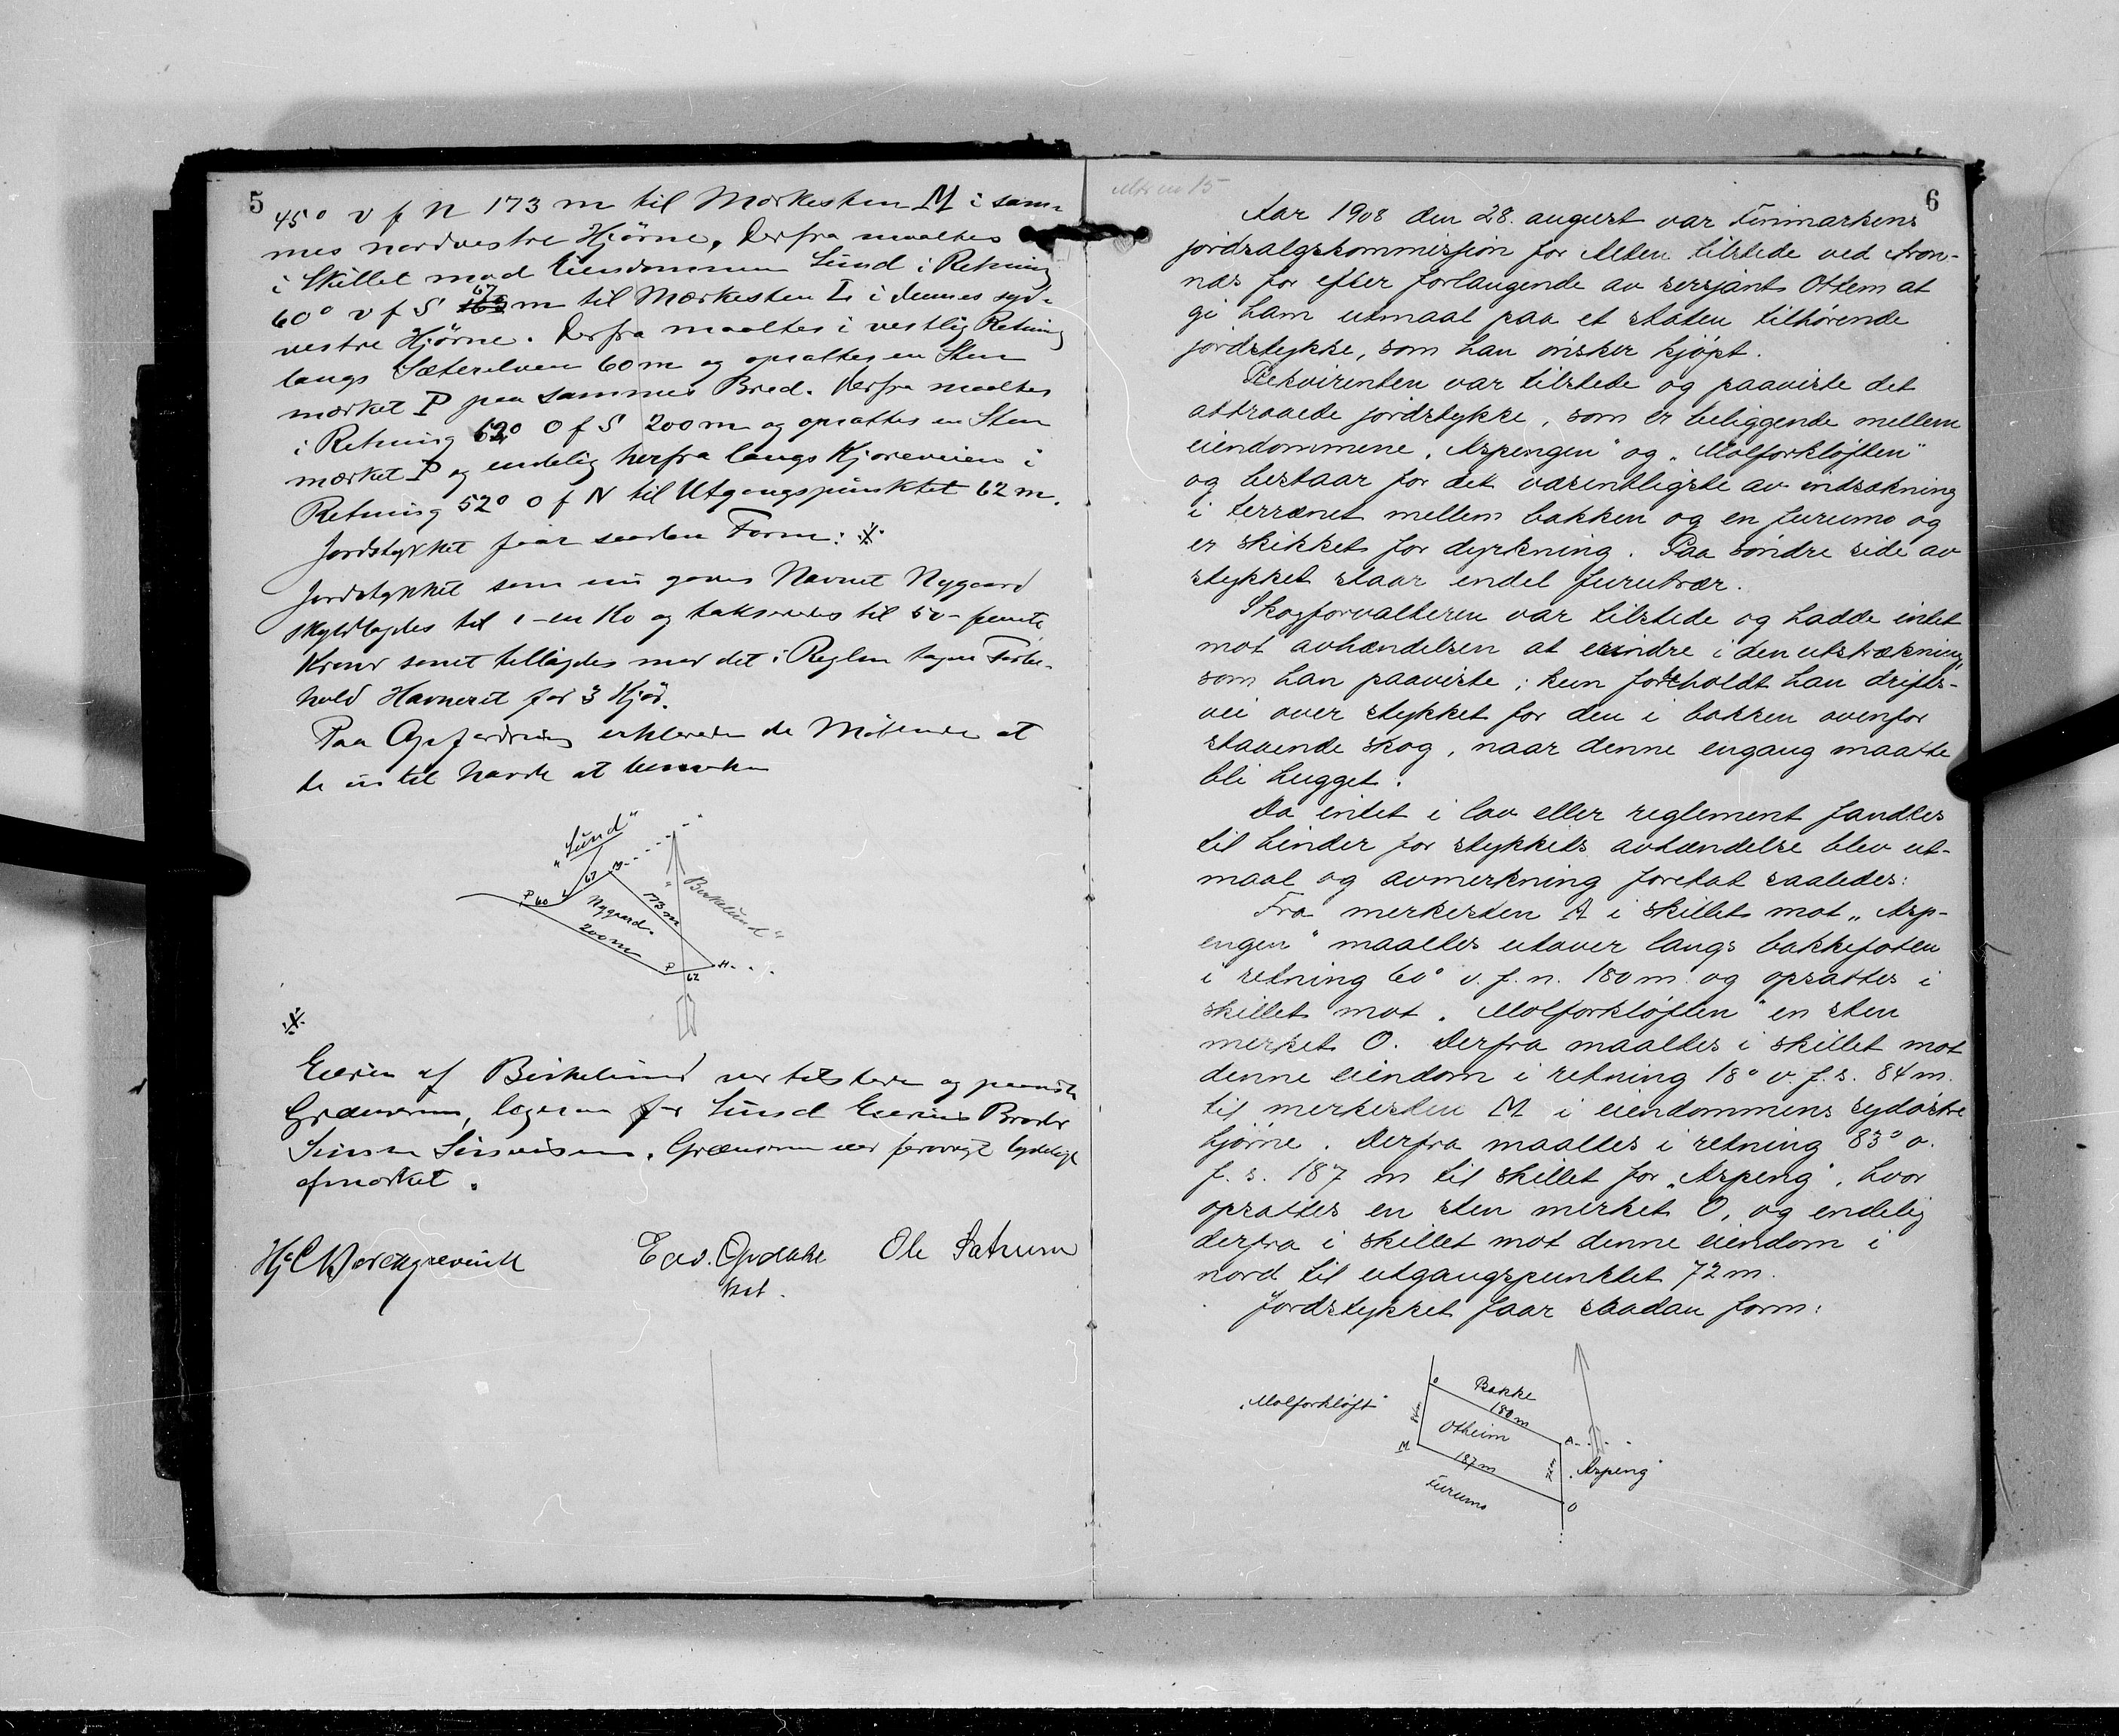 5
45° v f N 173 m til Mærkesten M i sam-
mes nordvestre Hjørne. Derfra maaltes
i Skillet mod Eiendommen Lund i Retning
60° v f S 67 m til Mærkesten L i dennes syd-
vestre Hjørne. Derfra maaltes i vestlig Retning
langs Sæterelven 60 m og opsattes en Sten
mærket P paa sammes Bred. Derfra maaltes
i Retning 62° O f S 200 m og opsattes en Sten
mærket P og endelig herfra langs Kjøreveien i
Retning 52° O f N til Utgangspunktet 62 m.
Jordstykket faar saadan Form:
Jordstykket som nu gaves Navnet Nygaard
skyldlagdes til 1 - en Ko og takseredes til 50 - femti
Kroner samt tillagdes med det i Reglen tagne Forbe-
hold Havneret for 3 Kjør.
Paa Opfordring erklærede de Mødende at
de intet havde at bemærke
"Lund"
M
67
P 60 L
Nygaard.
173 m
"Birkelund"
200 m
P
62
H
Eieren af Birkelund var tilstede og paaviste
Grænserne, ligesaa for Lund Eierens Broder
Grænserne er forøvrigt tydeligt
afmærket.
Edv. Opdahl
Ole Sætrum
Aar 1908 den 28. august var Finmarkens
6
jordsalgskommission for Alten tilstede ved Aron-
nes for efter forlangende av sersjant Ottem at
gi ham utmaal paa et staten tilhørende
jordstykke, som han ønsker kjøpt.
Rekvirenten var tilstede og paaviste det
attraaede jordstykke, som er beliggende mellem
eiendommene "Aspengen" og "Molforkløften"
og bestaar for det væsentligste av indsøkning
i terrænet mellem bakken og en furumo og
er skikket for dyrkning. Paa søndre side av
stykket staar endel furutrær.
Skogforvalteren var tilstede og hadde intet
mot avhændelsen at erindre i den utstrækning,
som han paaviste; kun forbeholdt han drifts-
vei over stykket for den i bakken ovenfor
staaende skog, naar denne engang maatte
bli hugget.
Da intet i lov eller reglement fandtes
til hinder for stykkets avhændelse blev ut-
maal og avmerkning foretat saaledes:
Fra merkesten A i skillet mot "Asp-
engen" maaltes utover langs bakkefoten
i retning 60° v. f. n. 180 m og opsattes i
skillet mot "Molforkløften" en sten
merket O. Derfra maaltes i skillet mot
denne eiendom i retning 18° v. f. s. 84 m.
til merkesten M i eiendommens sydøstre
hjørne. Derfra maaltes i retning 83° o.
f. s. 187 m til skillet for "Aspeng", hvor
opsattes en sten merket O, og endelig
derfra i skillet mot denne eiendom i
nord til utgangspunktet 72 m.
Jordstykket faar saadan form:
O
Bakke
180 m
"Molforkløft"
84 m
Otheim
A
M
187 m
72 m
"Aspeng"
Furumo
O